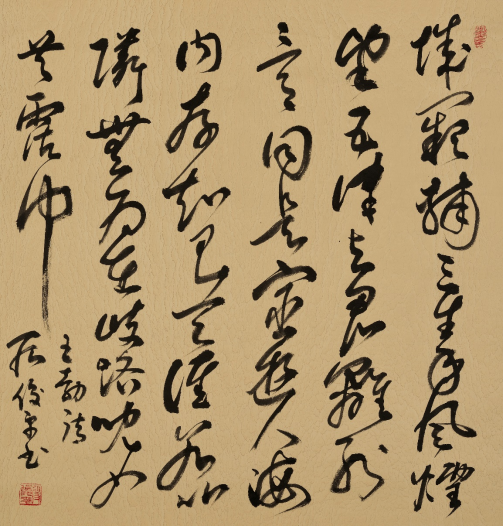 城闕輔三秦風煙
望五津与君離別
意同是宦遊人海
內存知己天涯若比
隣無為在歧路兒女
共霑巾
王勃詩
俊书